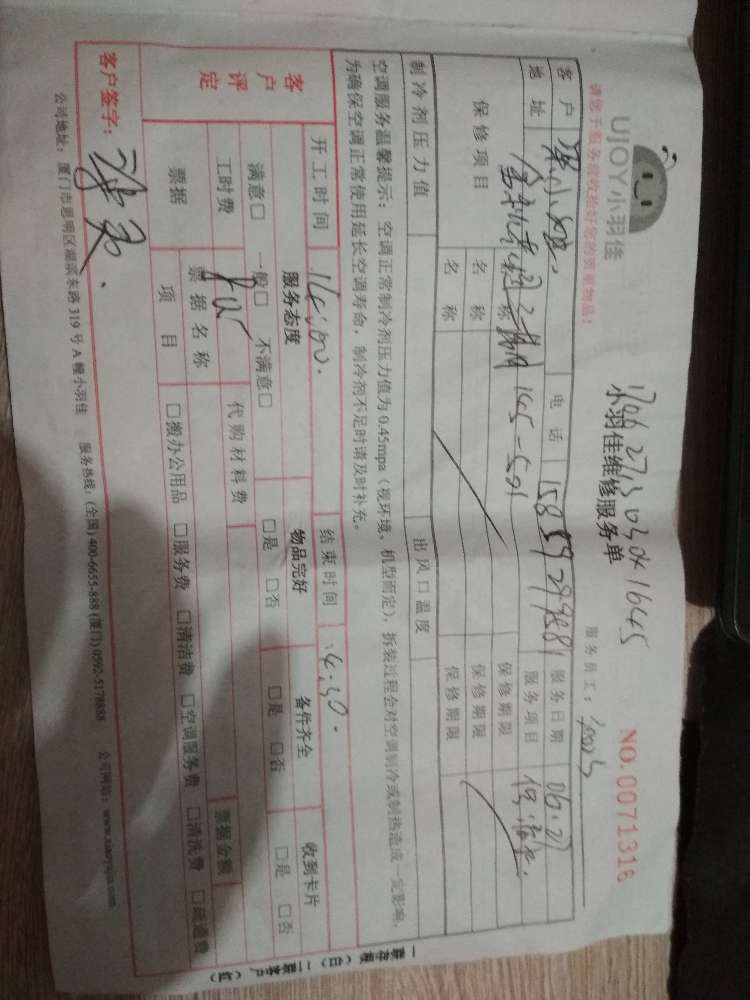 UJOY小羽佳
请您于服务验收检好您的贵重物品!
小羽佳维修服务单
服务员工:
NO. 0071316
客户 电话 服务日期 06.27
地址 145-501 服务项目
保修项目 名称 保修期限
名称 保修期限
名称 保修期限
制冷剂压力值 出风口温度
空调服务温馨提示:空调正常制冷剂压力值为0.45mpa(视环境、机型而定),拆装过程会对空调制冷或制热造成一定影响,
为确保空调正常使用延长空调寿命,制冷剂不足时请及时补充。
开工时间 14:00. 结束时间 14:30.
客户评定 服务态度 物品完好 备件齐全 收到卡片
满意□ 一般□ 不满意□ □是 □否 □是 □否 □是 □否
工时费 代购材料费
票据 票据名称 票据金额
项目 □搬办公用品 □服务费 □清洁费 □空调服务费 □清洗费 □疏通费
客户签字:
公司地址:厦门市思明区湖滨东路319号A幢小羽佳 服务热线:(全国) 400-6655-888 (厦门) 0592-5178888 公司网站:www.xiaoyujia.com
一联存根(白) 二联客户(红)